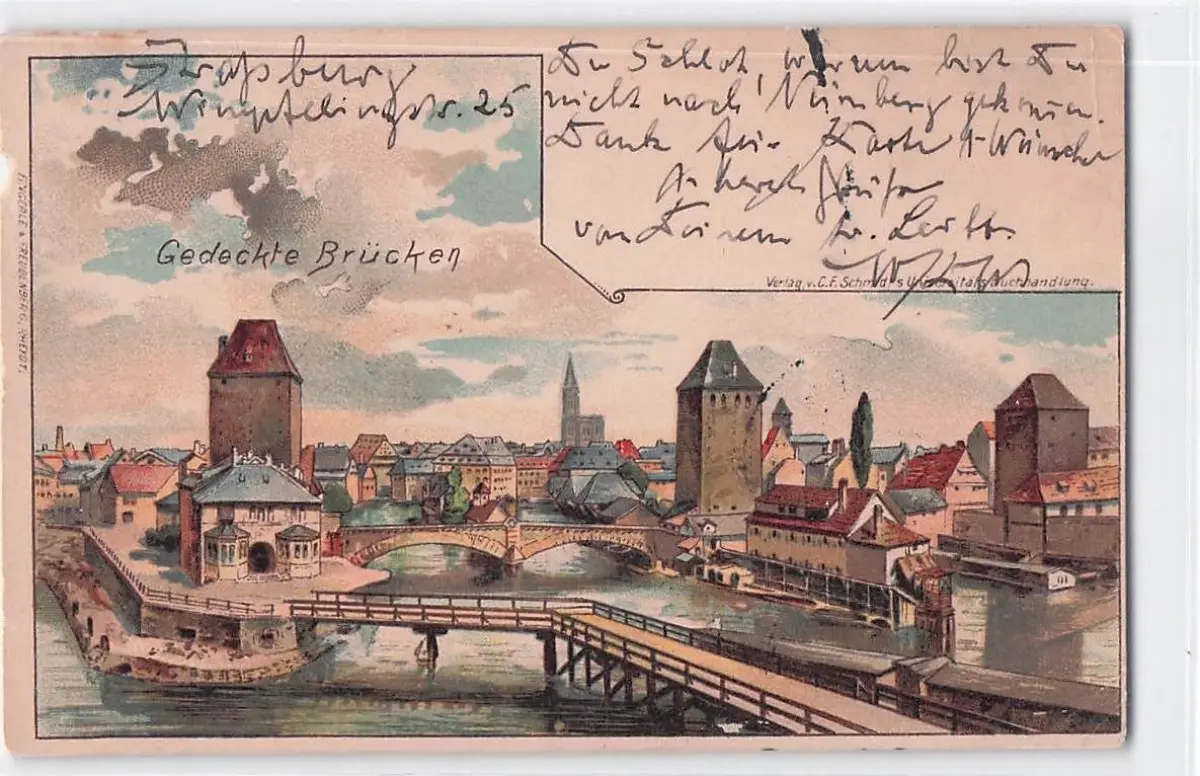 Straßburg
Wimpfelingstr. 25
Du Schlot, warum bist Du
nicht nach Nürnberg gekommen.
Dank für Karte & Wünsche
herzl. Grüße
von Deinem lb.
Gedeckte Brücken
Verlag v. C. F. Schmidt's Universitäts Buchhandlung.